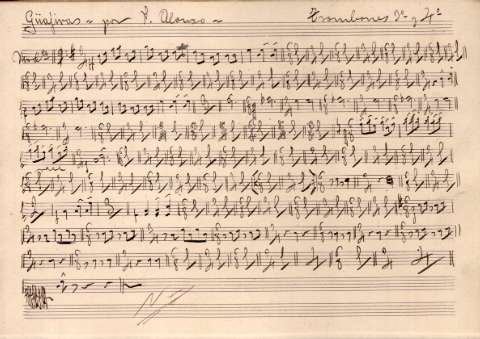 Guajiras - por P. Alonso - Trombones 3º y 4º
ff